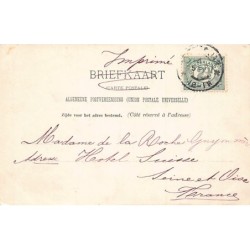 Imprimé
BRIEFKAART
(CARTE POSTALE)
ALGEMEENE POSTVEREENIGING (UNION POSTALE UNIVERSELLE)
Zijde voor het adres bestemd. (Côté réservé à l'adresse)
Madame de la Roche
Adres Hotel Suisse
Seine et Oise
France